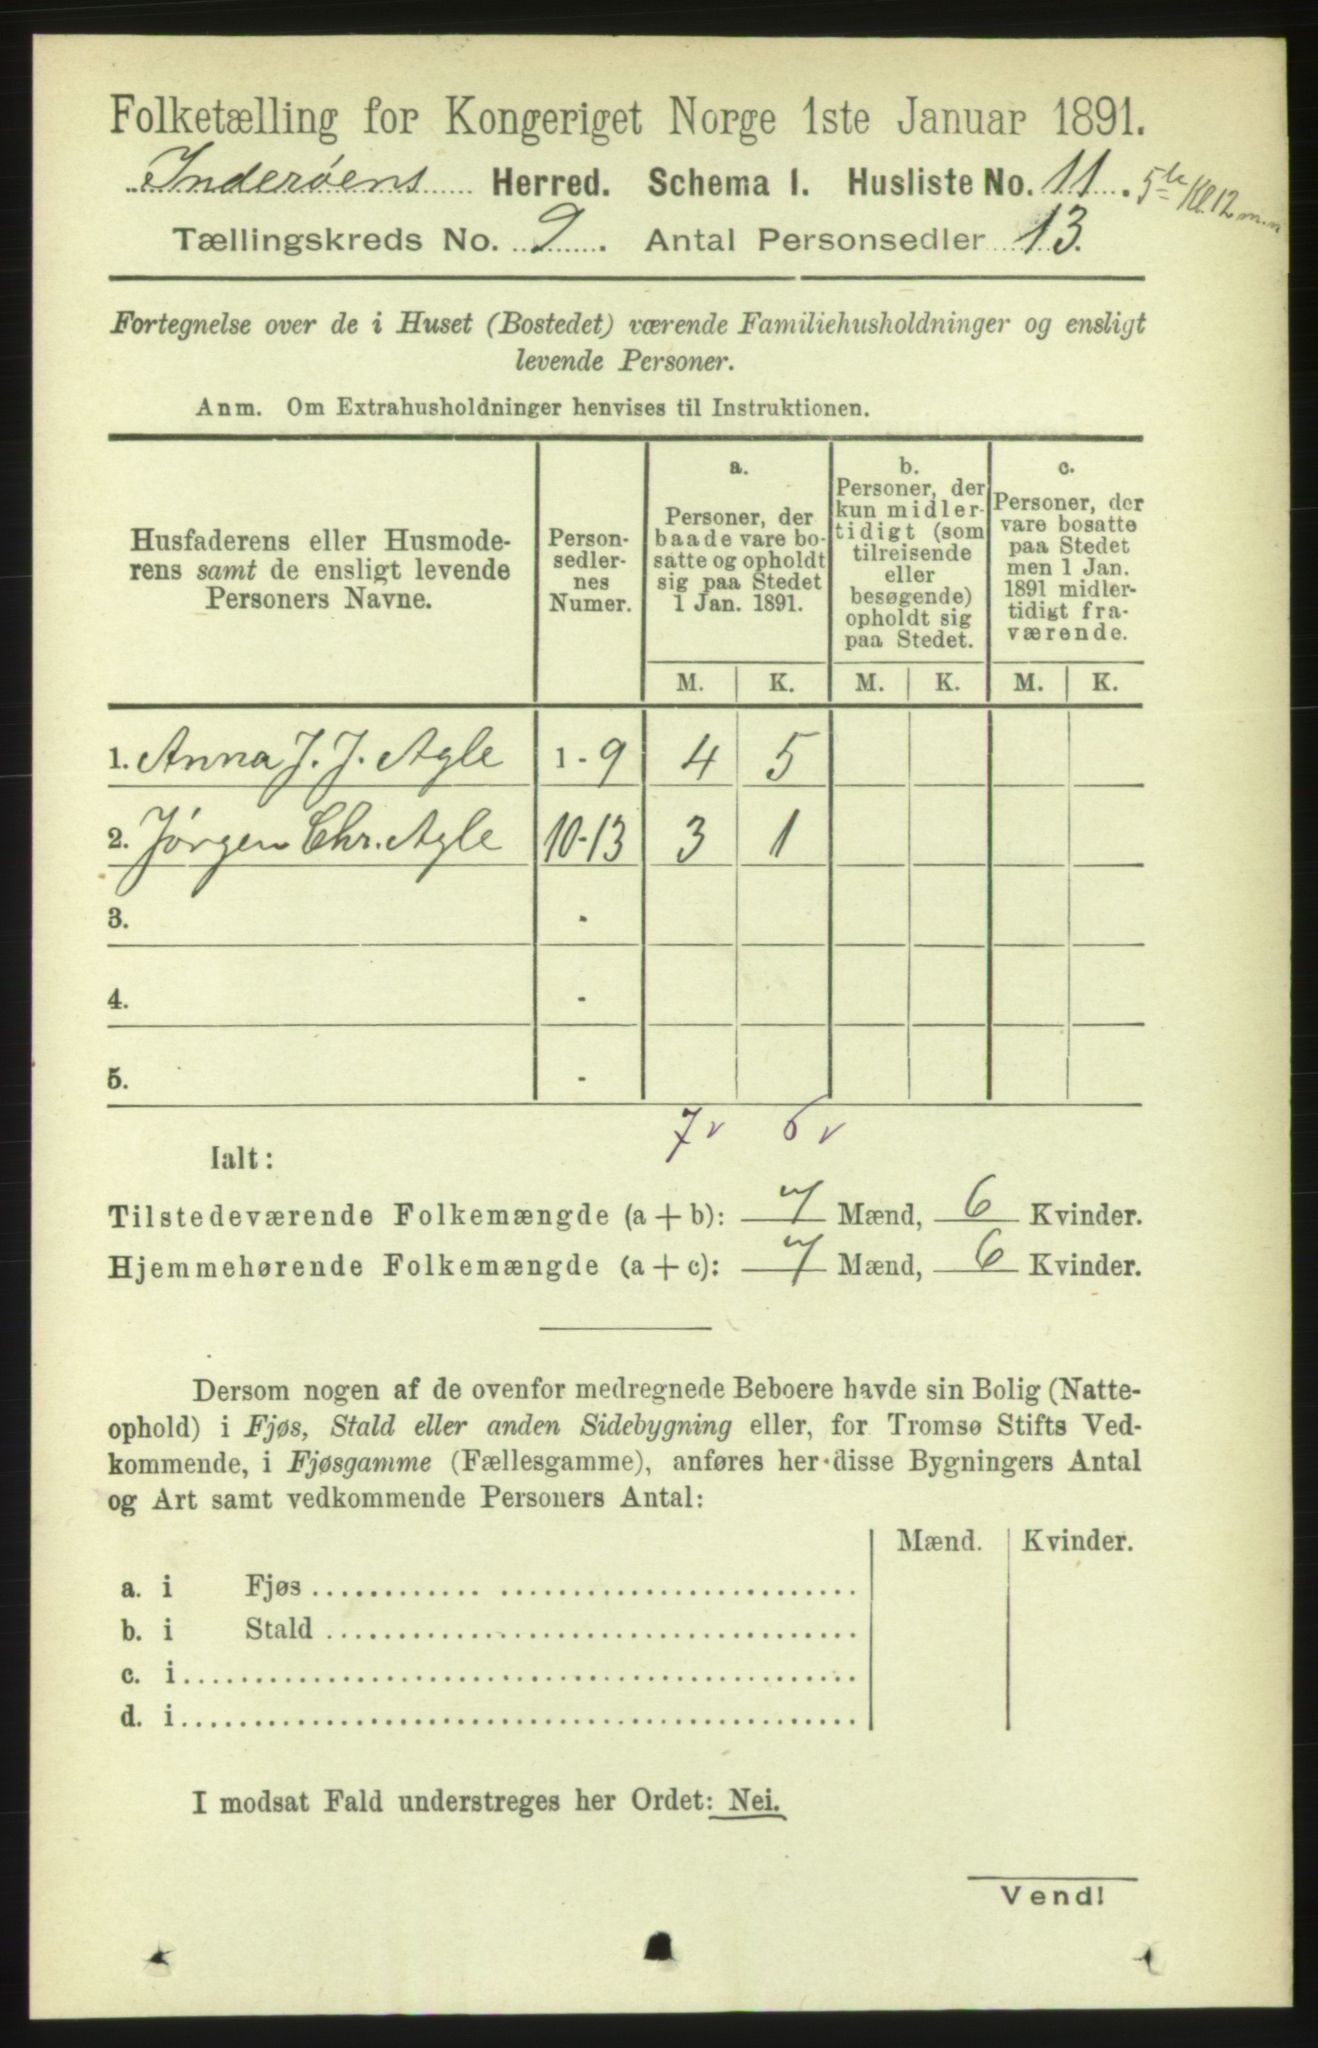 Folketælling for Kongeriget Norge 1ste Januar 1891.
Inderøens Herred. Schema I. Husliste No. 11. 5te Kl. 12 m.n
Tællingskreds No. 9. Antal Personsedler 13.
Fortegnelse over de i Huset (Bostedet) værende Familiehusholdninger og ensligt
levende Personer.
Anm. Om Extrahusholdninger henvises til Instruktionen.
Husfaderens eller Husmode-
rens samt de ensligt levende
Personers Navne.
Person-
sedler-
nes
Numer.
a.
Personer, der
baade vare bo-
satte og opholdt
sig paa Stedet
1 Jan. 1891.
b.
Personer, der
kun midler-
tidigt (som
tilreisende
eller
besøgende)
opholdt sig
paa Stedet.
c.
Personer, der
vare bosatte
paa Stedet
men 1 Jan.
1891 midler-
tidigt fra-
værende.
M. K. M. K. M. K.
1. Anna J. J. Agle 1 - 9 4 5
2. Jørgen Chr. Agle 10-13 3 1
3. -
4. -
5. -
7 v 6 v
Ialt:
Tilstedeværende Folkemængde (a + b): 7 Mænd, 6 Kvinder.
Hjemmehørende Folkemængde (a + c): 7 Mænd, 6 Kvinder.
Dersom nogen af de ovenfor medregnede Beboere havde sin Bolig (Natte-
ophold) i Fjøs, Stald eller anden Sidebygning eller, for Tromsø Stifts Ved-
kommende, i Fjøsgamme (Fællesgamme), anføres her disse Bygningers Antal
og Art samt vedkommende Personers Antal:
Mænd. Kvinder.
a. i Fjøs
b. i Stald
c. i
d. i
I modsat Fald understreges her Ordet: Nei.
Vend!